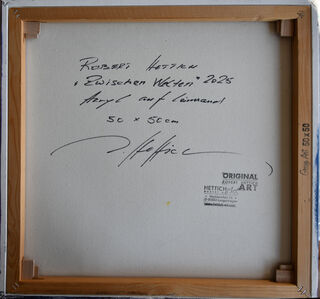 ROBERT HETTICH
"Zwischen Welten" 2025
Acryl auf Leinwand
50 x 50cm
R. Hettich
ORIGINAL
ROBERT HETTICH
HETTICH-
ART
50x50